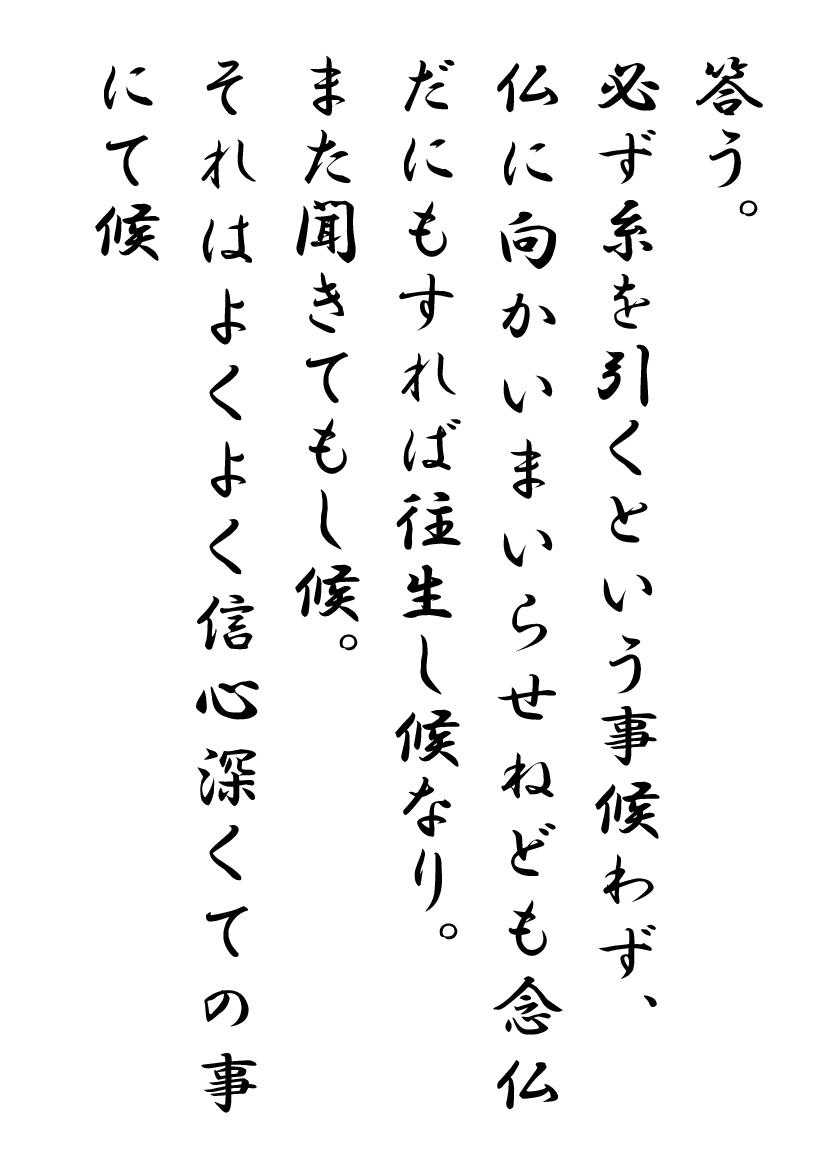 答う。
必ず糸を引くという事候わず、
仏に向かいまいらせねども念仏
だにもすれば往生し候なり。
また聞きてもし候。
それはよくよく信心深くての事
にて候